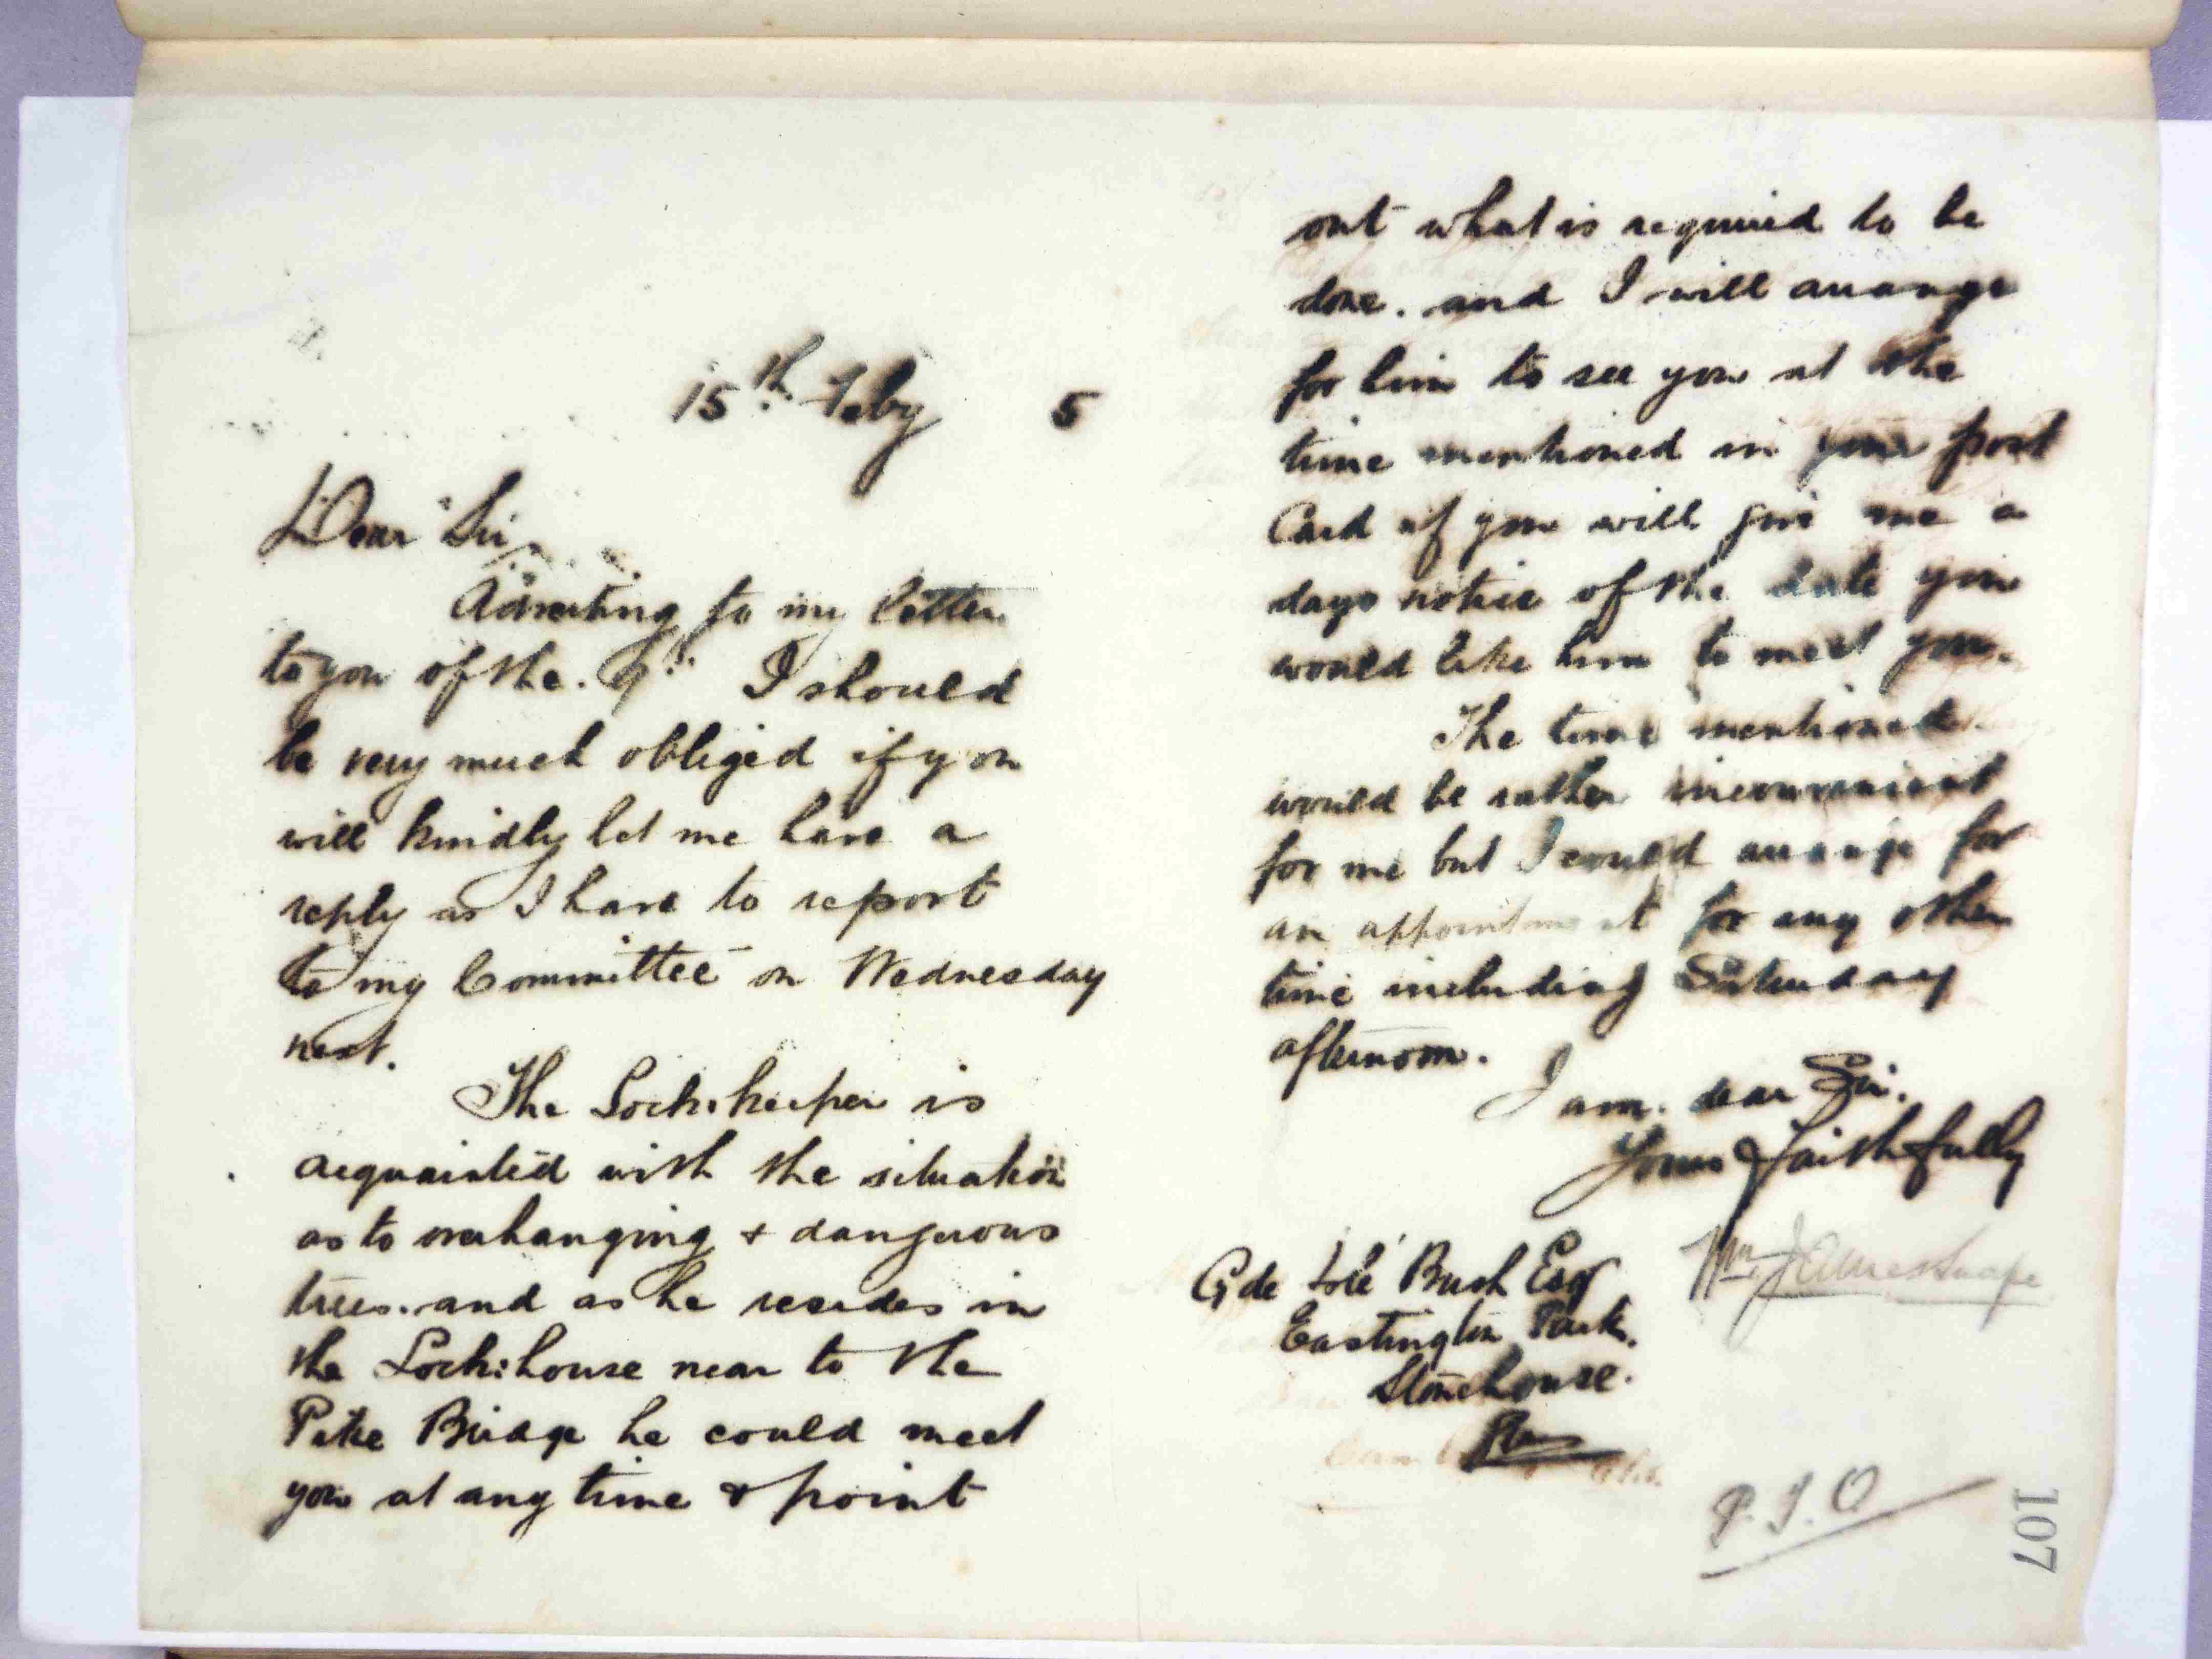 15th Feby 5
Dear Sir,
Adverting to my letter
to you of the 9th I should
be very much obliged if you
will kindly let me have a
reply as I have to report
to my Committee on Wednesday
next.
The Lock:keeper is
acquainted with the situation
as to overhanging & dangerous
trees. and as he resides in
the Lock:house near to the
Pike Bridge he could meet
you at any time & point
out what is required to be
done. and I will arrange
for him to see you at the
time mentioned in your post
Card if you will give me a
days notice of the date you
would like him to meet you.
The time mentioned
would be rather inconvenient
for me but I could arrange for
an appointment for any other
time including Saturday
afternoon.
I am. dear Sir.
Yours Faithfully
G de Bush Esq
Eastington Park.
Stonehouse.
P.T.O
107